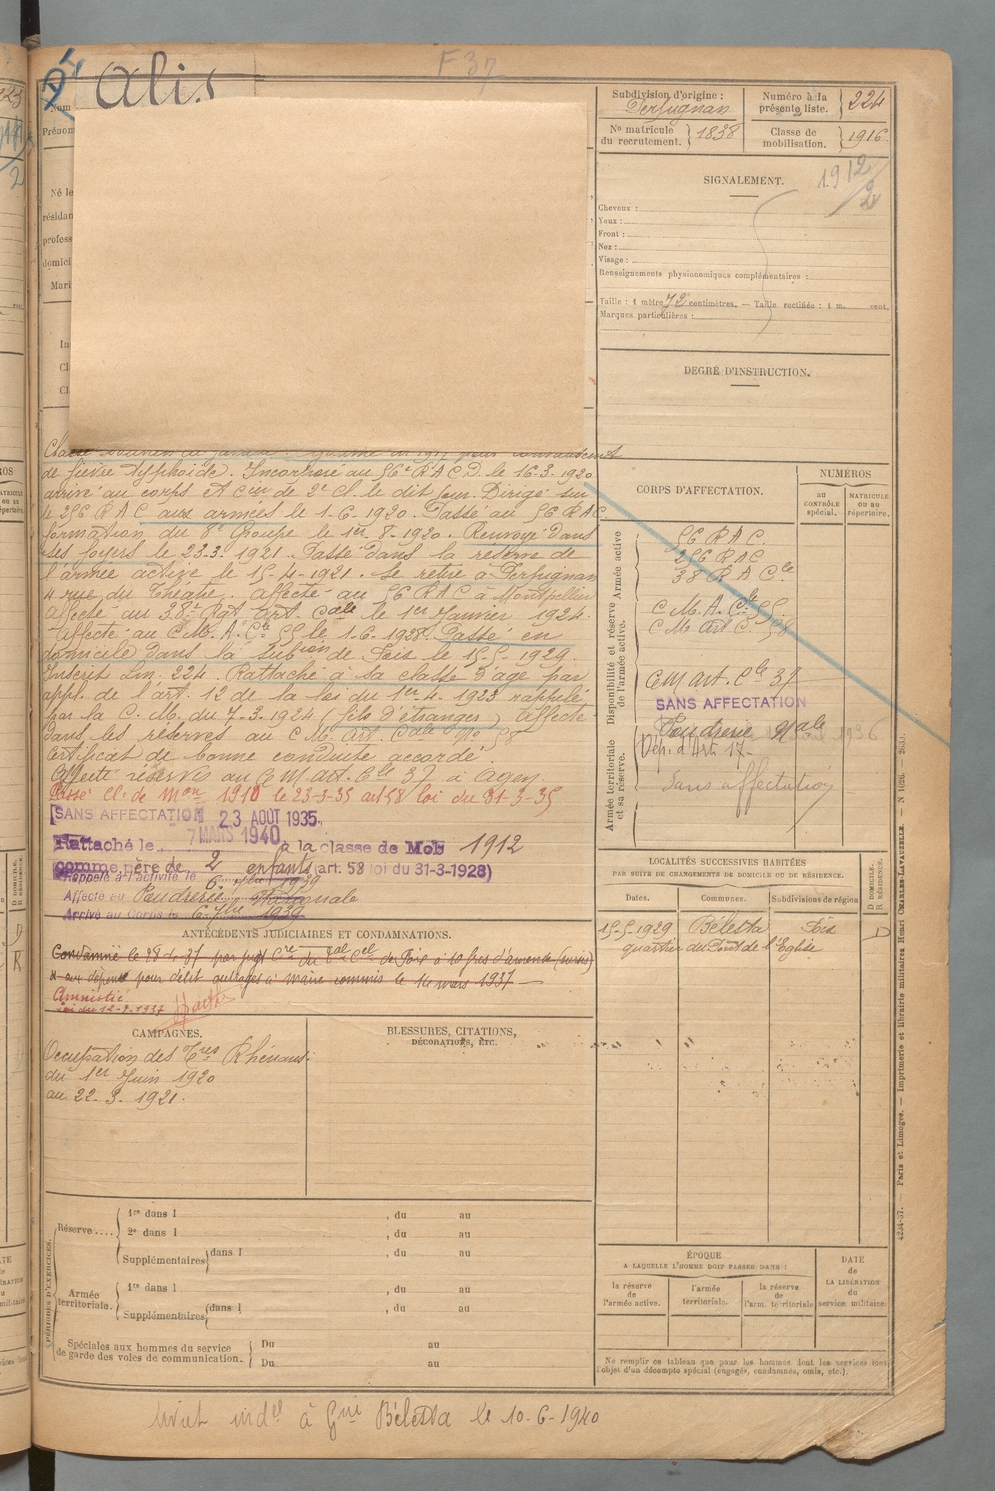 F 37
Alis
Nom
Prénom
Né le
résidan
profess
domici
Mari
In
Cl
Cl
de fièvre typhoïde. Incorporé au 56e R A C D. le 16-3-1920
arrivé au corps et cier de 2e cl. le dit jour. Dirigé sur
le 256 R A C aux armées le 1-6-1920. Passé au 56 R A C
formation du 8e Groupe le 1er 8-1920. Renvoyé dans
ses foyers le 23.3.1921. Passé dans la réserve de
l'armée active le 15-4-1921. Se retire à Perpignan
4 rue du Théatre. Affecté au 56 R A C à Montpellier
affecté au 38e Rgt Art. Cale le 1er Janvier 1924.
Affecté au C. M. A. Cle 55 le 1.6.1928. Passé en
domicile dans la subion de Foix le 15-5-1929.
Inscrit Lm. 224. Rattaché à sa classe d'âge par
appl. de l'art. 12 de la loi du 1er-4-1923 rappelé
par la C. M. du 7-3-1924 (fils d'étranger) Affecté
dans les réserves au C M. Art. Cale No 58
Certificat de bonne conduite accordé.
Affecté réserve au C M art. Cle 37 à Agen.
Passé Cl. de Mon 1910 le 23-3-35 art 58 loi du 31-3-35
SANS AFFECTATION 23 AOUT 1935
7 MARS 1940
Rattaché le à la classe de Mob 1912
comme père de 2 enfants (art. 58 loi du 31-3-1928)
Rappelé à l'activité le 6 1939
Affecté au Poudrerie Nationale
Arrivé au Corps le 6 1939
ANTÉCÉDENTS JUDICIAIRES ET CONDAMNATIONS.
Condamné le 28-4-37 par jugt Cre du de Foix à 10 frs d'amende (sursis)
et aux dépens pour délit outrages à maire commis le 14 mars 1937
Amnistié
Loi du 12-7-1937
CAMPAGNES.
Occupation des Tres Rhénans
du 1er Juin 1920
au 22-3-1921.
BLESSURES, CITATIONS,
DÉCORATIONS, ETC.
PÉRIODES D'EXERCICES.
Réserve....
1re dans l , du au
2e dans l , du au
Supplémentaires dans l , du au
Armée
territoriale.
1re dans l , du au
Supplémentaires dans l , du au
Spéciales aux hommes du service
de garde des voies de communication.
Du au
Du au
Subdivision d'origine :
Perpignan
Numéro à la
présente liste. 224
No matricule
du recrutement. 1838
Classe de
mobilisation. 1916
1912
2
SIGNALEMENT.
Cheveux :
Yeux :
Front :
Nez :
Visage :
Renseignements physionomiques complémentaires :
Taille : 1 mètre 72 centimètres. — Taille rectifiée : 1 m. cent.
Marques particulières :
DEGRÉ D'INSTRUCTION.
CORPS D'AFFECTATION.
NUMÉROS
au
CONTRÔLE
spécial.
MATRICULE
OU au
répertoire.
Armée active
56 R A C.
256 R A C
38 R A Cle
Disponibilité et réserve
de l'armée active.
C M. A. Cle 55.
C M Art C. 58
C M art. Cle 37
SANS AFFECTATION
Armée territoriale
et sa réserve.
Poudrerie Nale
Dép. d'Art 17
Sans affectation
LOCALITÉS SUCCESSIVES HABITÉES
PAR SUITE DE CHANGEMENTS DE DOMICILE OU DE RÉSIDENCE.
Dates.
Communes.
Subdivisions de région
D DOMICILE.
R RÉSIDENCE.
15-5-1929 Bélesta Foix D
quartier du Pont de l'Eglise
ÉPOQUE
A LAQUELLE L'HOMME DOIT PASSER DANS :
DATE
de
LA LIBÉRATION
du
service militaire.
la réserve
de
l'armée active.
l'armée
territoriale.
la réserve
de
l'arm. territoriale
Ne remplir ce tableau que pour les hommes dont les services font
l'objet d'un décompte spécial (engagés, condamnés, omis, etc.).
4234-37. — Paris et Limoges. — Imprimerie et librairie militaires Henri CHARLES-LAVAUZELLE.
livret indel à Gie Bélesta le 10-6-1940